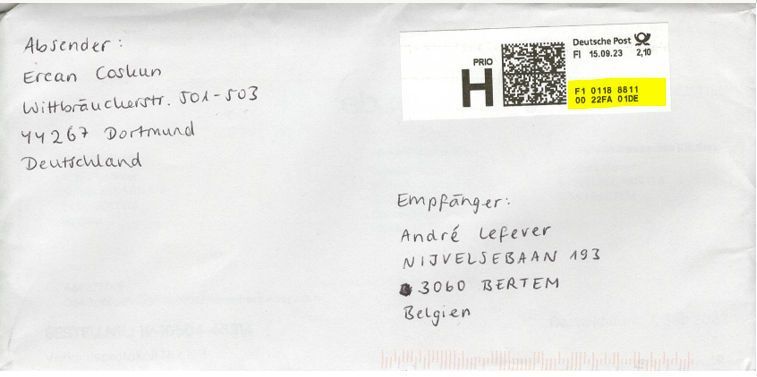 Absender:
Ercan Coskun
Wittbräucherstr. 501-503
44267 Dortmund
Deutschland
PRIO
H
Deutsche Post
FI 15.09.23 2,10
F1 0118 8811
00 22FA 01DE
Empfänger:
André Lefever
NIJVELSEBAAN 193
3060 BERTEM
Belgien